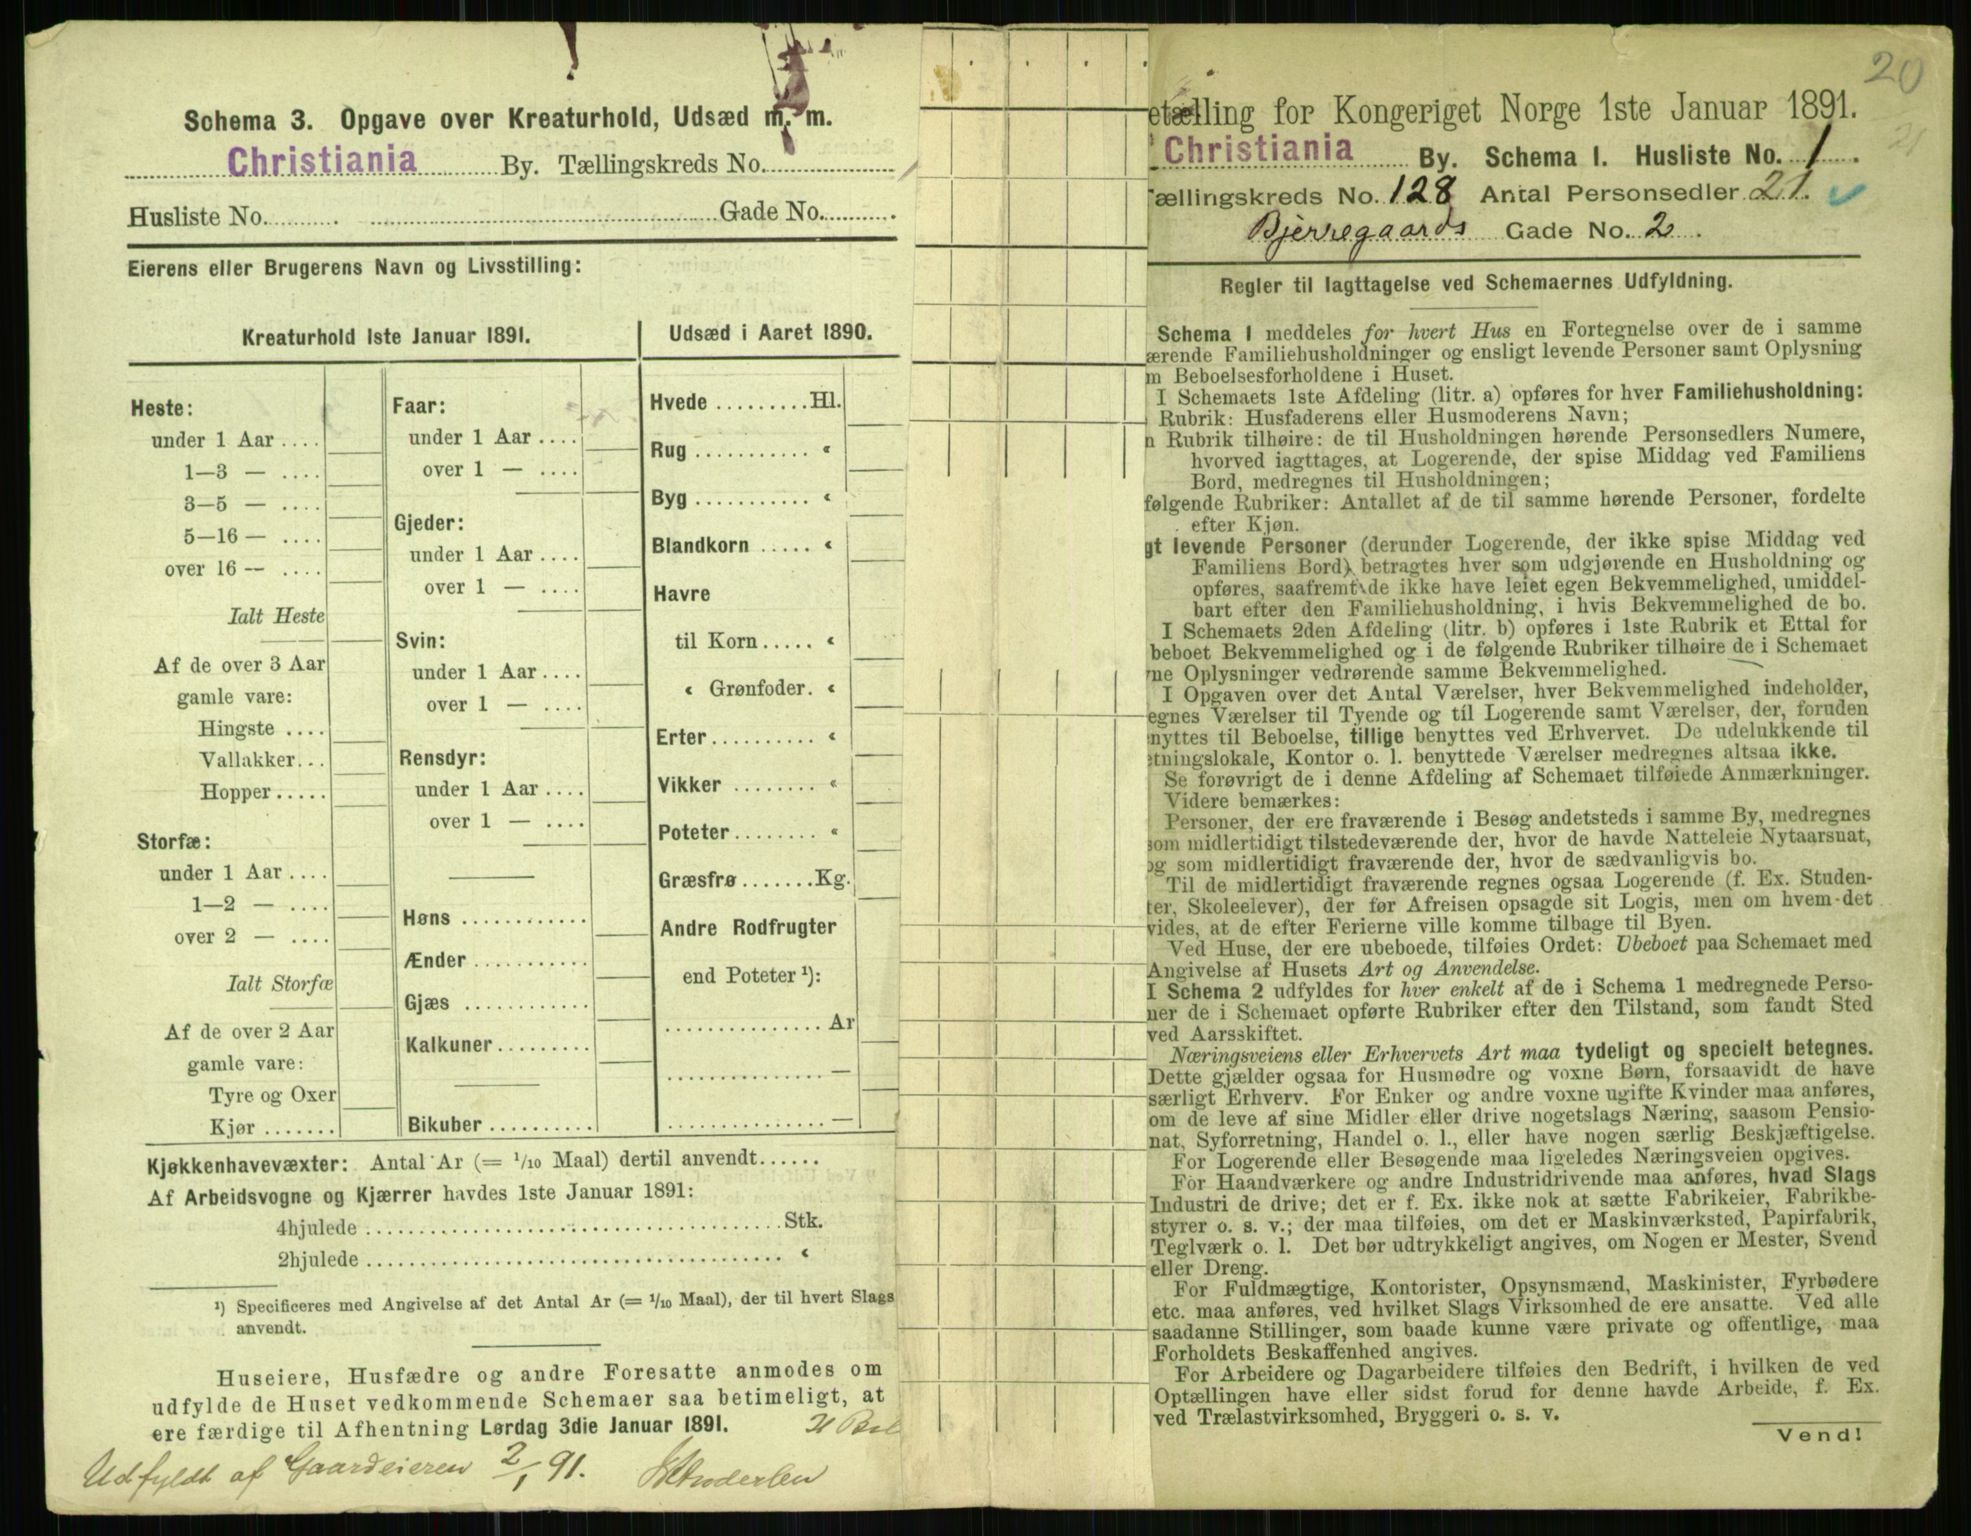 Schema 3. Opgave over Kreaturhold, Udsæd m. m.
Christiania By. Tællingskreds No.
Husliste No. Gade No.
Eierens eller Brugerens Navn og Livsstilling:
Kreaturhold 1ste Januar 1891.
Heste:
under 1 Aar
1—3 —
3—5 —
5—16 —
over 16 —
Ialt Heste
Af de over 3 Aar
gamle vare:
Hingste
Vallakker
Hopper
Storfæ:
under 1 Aar
1—2 —
over 2 —
Ialt Storfæ
Af de over 2 Aar
gamle vare:
Tyre og Oxer
Kjør
Faar:
under 1 Aar
over 1 —
Gjeder:
under 1 Aar
over 1 —
Svin:
under 1 Aar
over 1 —
Rensdyr:
under 1 Aar
over 1 —
Høns
Ænder
Gjæs
Kalkuner
Bikuber
Udsæd i Aaret 1890.
Hvede Hl.
Rug "
Byg "
Blandkorn "
Havre
til Korn "
" Grønfoder. "
Erter "
Vikker "
Poteter "
Græsfrø Kg.
Andre Rodfrugter
end Poteter ¹):
Ar
—
—
Kjøkkenhavevæxter: Antal Ar (= 1/10 Maal) dertil anvendt
Af Arbeidsvogne og Kjærrer havdes 1ste Januar 1891:
4hjulede Stk.
2hjulede "
¹) Specificeres med Angivelse af det Antal Ar (= 1/10 Maal), der til hvert Slags
anvendt.
Huseiere, Husfædre og andre Foresatte anmodes om
udfylde de Huset vedkommende Schemaer saa betimeligt, at
ere færdige til Afhentning Lørdag 3die Januar 1891.
Udfyldt af Gaardeieren 2/1 91.
20
21
etælling for Kongeriget Norge 1ste Januar 1891.
Christiania By. Schema 1. Husliste No. 1.
Tællingskreds No. 128 Antal Personsedler 21.
Bjerregaards Gade No. 2.
Regler til Iagttagelse ved Schemaernes Udfyldning.
Schema 1 meddeles for hvert Hus en Fortegnelse over de i samme
ærende Familiehusholdninger og ensligt levende Personer samt Oplysning
m Beboelsesforholdene i Huset.
I Schemaets 1ste Afdeling (litr. a) opføres for hver Familiehusholdning:
Rubrik: Husfaderens eller Husmoderens Navn;
n Rubrik tilhøire: de til Husholdningen hørende Personsedlers Numere,
hvorved iagttages, at Logerende, der spise Middag ved Familiens
Bord, medregnes til Husholdningen;
følgende Rubriker: Antallet af de til samme hørende Personer, fordelte
efter Kjøn.
gt levende Personer (derunder Logerende, der ikke spise Middag ved
Familiens Bord) betragtes hver som udgjørende en Husholdning og
opføres, saafremt de ikke have leiet egen Bekvemmelighed, umiddel-
bart efter den Familiehusholdning, i hvis Bekvemmelighed de bo.
I Schemaets 2den Afdeling (litr. b) opføres i 1ste Rubrik et Ettal for
beboet Bekvemmelighed og i de følgende Rubriker tilhøire de i Schemaet
rne Oplysninger vedrørende samme Bekvemmelighed.
I Opgaven over det Antal Værelser, hver Bekvemmelighed indeholder,
egnes Værelser til Tyende og til Logerende samt Værelser, der, foruden
nyttes til Beboelse, tillige benyttes ved Erhvervet. De udelukkende til
etningslokale, Kontor o. l. benyttede Værelser medregnes altsaa ikke.
Se forøvrigt de i denne Afdeling af Schemaet tilføiede Anmærkninger.
Videre bemærkes:
Personer, der ere fraværende i Besøg andetsteds i samme By, medregnes
som midlertidigt tilstedeværende der, hvor de havde Natteleie Nytaarsnat,
og som midlertidigt fraværende der, hvor de sædvanligvis bo.
Til de midlertidigt fraværende regnes ogsaa Logerende (f. Ex. Studen-
ter, Skoleelever), der før Afreisen opsagde sit Logis, men om hvem det
vides, at de efter Ferierne ville komme tilbage til Byen.
Ved Huse, der ere ubeboede, tilføies Ordet: Ubeboet paa Schemaet med
Angivelse af Husets Art og Anvendelse.
I Schema 2 udfyldes for hver enkelt af de i Schema 1 medregnede Perso-
ner de i Schemaet opførte Rubriker efter den Tilstand, som fandt Sted
ved Aarsskiftet.
Næringsveiens eller Erhvervets Art maa tydeligt og specielt betegnes.
Dette gjælder ogsaa for Husmødre og voxne Børn, forsaavidt de have
særligt Erhverv. For Enker og andre voxne ugifte Kvinder maa anføres,
om de leve af sine Midler eller drive nogetslags Næring, saasom Pensio-
nat, Syforretning, Handel o. l., eller have nogen særlig Beskjæftigelse.
For Logerende eller Besøgende maa ligeledes Næringsveien opgives.
For Haandværkere og andre Industridrivende maa anføres, hvad Slags
Industri de drive; det er f. Ex. ikke nok at sætte Fabrikeier, Fabrikbe-
styrer o. s. v.; der maa tilføies, om det er Maskinværksted, Papirfabrik,
Teglværk o. l. Det bør udtrykkeligt angives, om Nogen er Mester, Svend
eller Dreng.
For Fuldmægtige, Kontorister, Opsynsmænd, Maskinister, Fyrbødere
etc. maa anføres, ved hvilket Slags Virksomhed de ere ansatte. Ved alle
saadanne Stillinger, som baade kunne være private og offentlige, maa
Forholdets Beskaffenhed angives.
For Arbeidere og Dagarbeidere tilføies den Bedrift, i hvilken de ved
Optællingen have eller sidst forud for denne havde Arbeide, f. Ex.
ved Trælastvirksomhed, Bryggeri o. s. v.
Vend!